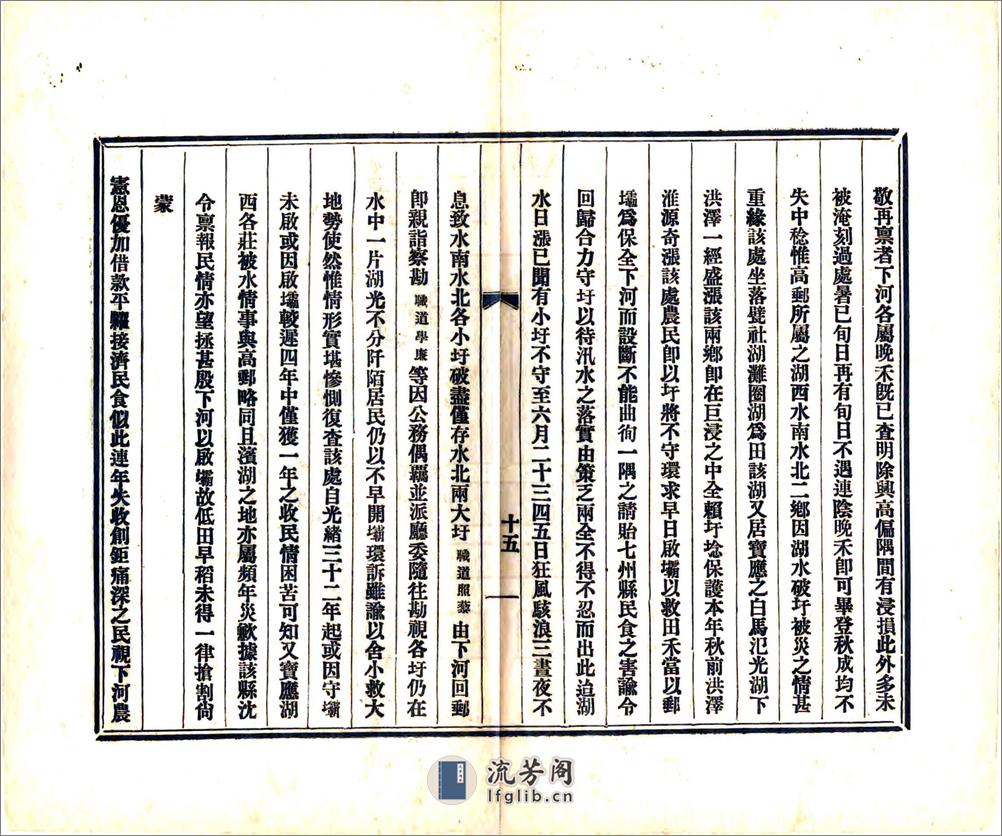 敬再稟者下河各屬晚禾既已查明除興高偏隅間有浸損此外多未
被淹刻過處暑已旬日再有旬日不遇連陰晚禾卽可畢登秋成均不
失中稔惟高郵所屬之湖西水南水北二鄉因湖水破圩被災之情甚
重緣該處坐落甓社湖灘圈湖爲田該湖又居寶應之白馬氾光湖下
洪澤一經盛漲該兩鄉卽在巨浸之中全賴圩埝保護本年秋前洪澤
淮源奇漲該處農民卽以圩將不守環求早日啟壩以救田禾當以郵
壩爲保全下河而設斷不能曲徇一隅之請貽七州縣民食之害諭令
回歸合力守圩以待汛水之落實由策乏兩全不得不忍而出此迨湖
水日漲已聞有小圩不守至六月二十三四五日狂風駭浪三晝夜不
十五
息致水南水北各小圩破盡僅存水北兩大圩職道照藜由下河回郵
卽親詣察勘職道學廉等因公務偶羈並派廳委隨往勘視各圩仍在
水中一片湖光不分阡陌居民仍以不早開壩環訴雖諭以舍小救大
地勢使然惟情形實堪慘惻復查該處自光緒三十二年起或因守壩
未啟或因啟壩較遲四年中僅獲一年之收民情困苦可知又寶應湖
西各莊被水情事與高郵略同且濱湖之地亦屬頻年災歉據該縣沈
令稟報民情亦望拯甚殷下河以啟壩故低田早稻未得一律搶割尙
蒙
憲恩優加借款平糶接濟民食似此連年失收創鉅痛深之民視下河農
流芳阁
lfglib.cn